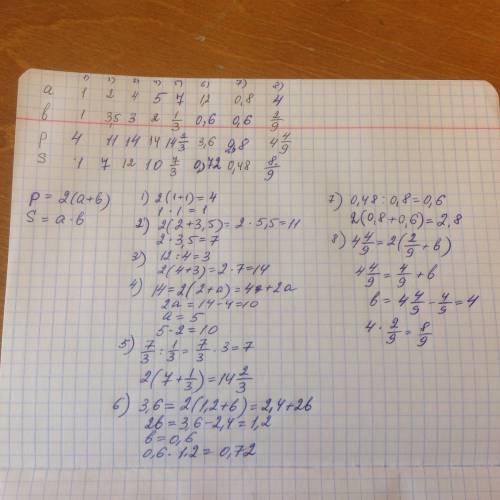 1) 2) 3) 4) 5) 6) 7) 8)
a 1 2 4 5 7 1,2 0,8 4
b 1 3,5 3 2 1/3 0,6 0,6 2/9
P 4 11 14 14 14 2/3 3,6 2,8 4 4/9
S 1 7 12 10 7/3 0,72 0,48 8/9
P = 2(a+b)
S = a·b
1) 2(1+1)=4
1·1=1
2) 2(2+3,5)=2·5,5=11
2·3,5=7
3) 12:4=3
2(4+3)=2·7=14
4) 14=2(2+a)=4+2a
2a=14-4=10
a=5
5·2=10
5) 7/3 : 1/3 = 7/3 · 3=7
2(7+1/3)=14 2/3
6) 3,6=2(1,2+b)=2,4+2b
2b=3,6-2,4=1,2
b=0,6
0,6·1,2=0,72
7) 0,48:0,8=0,6
2(0,8+0,6)=2,8
8) 4 4/9=2(2/9+b)
4 4/9=4/9+b
b=4 4/9-4/9=4
4·2/9=8/9